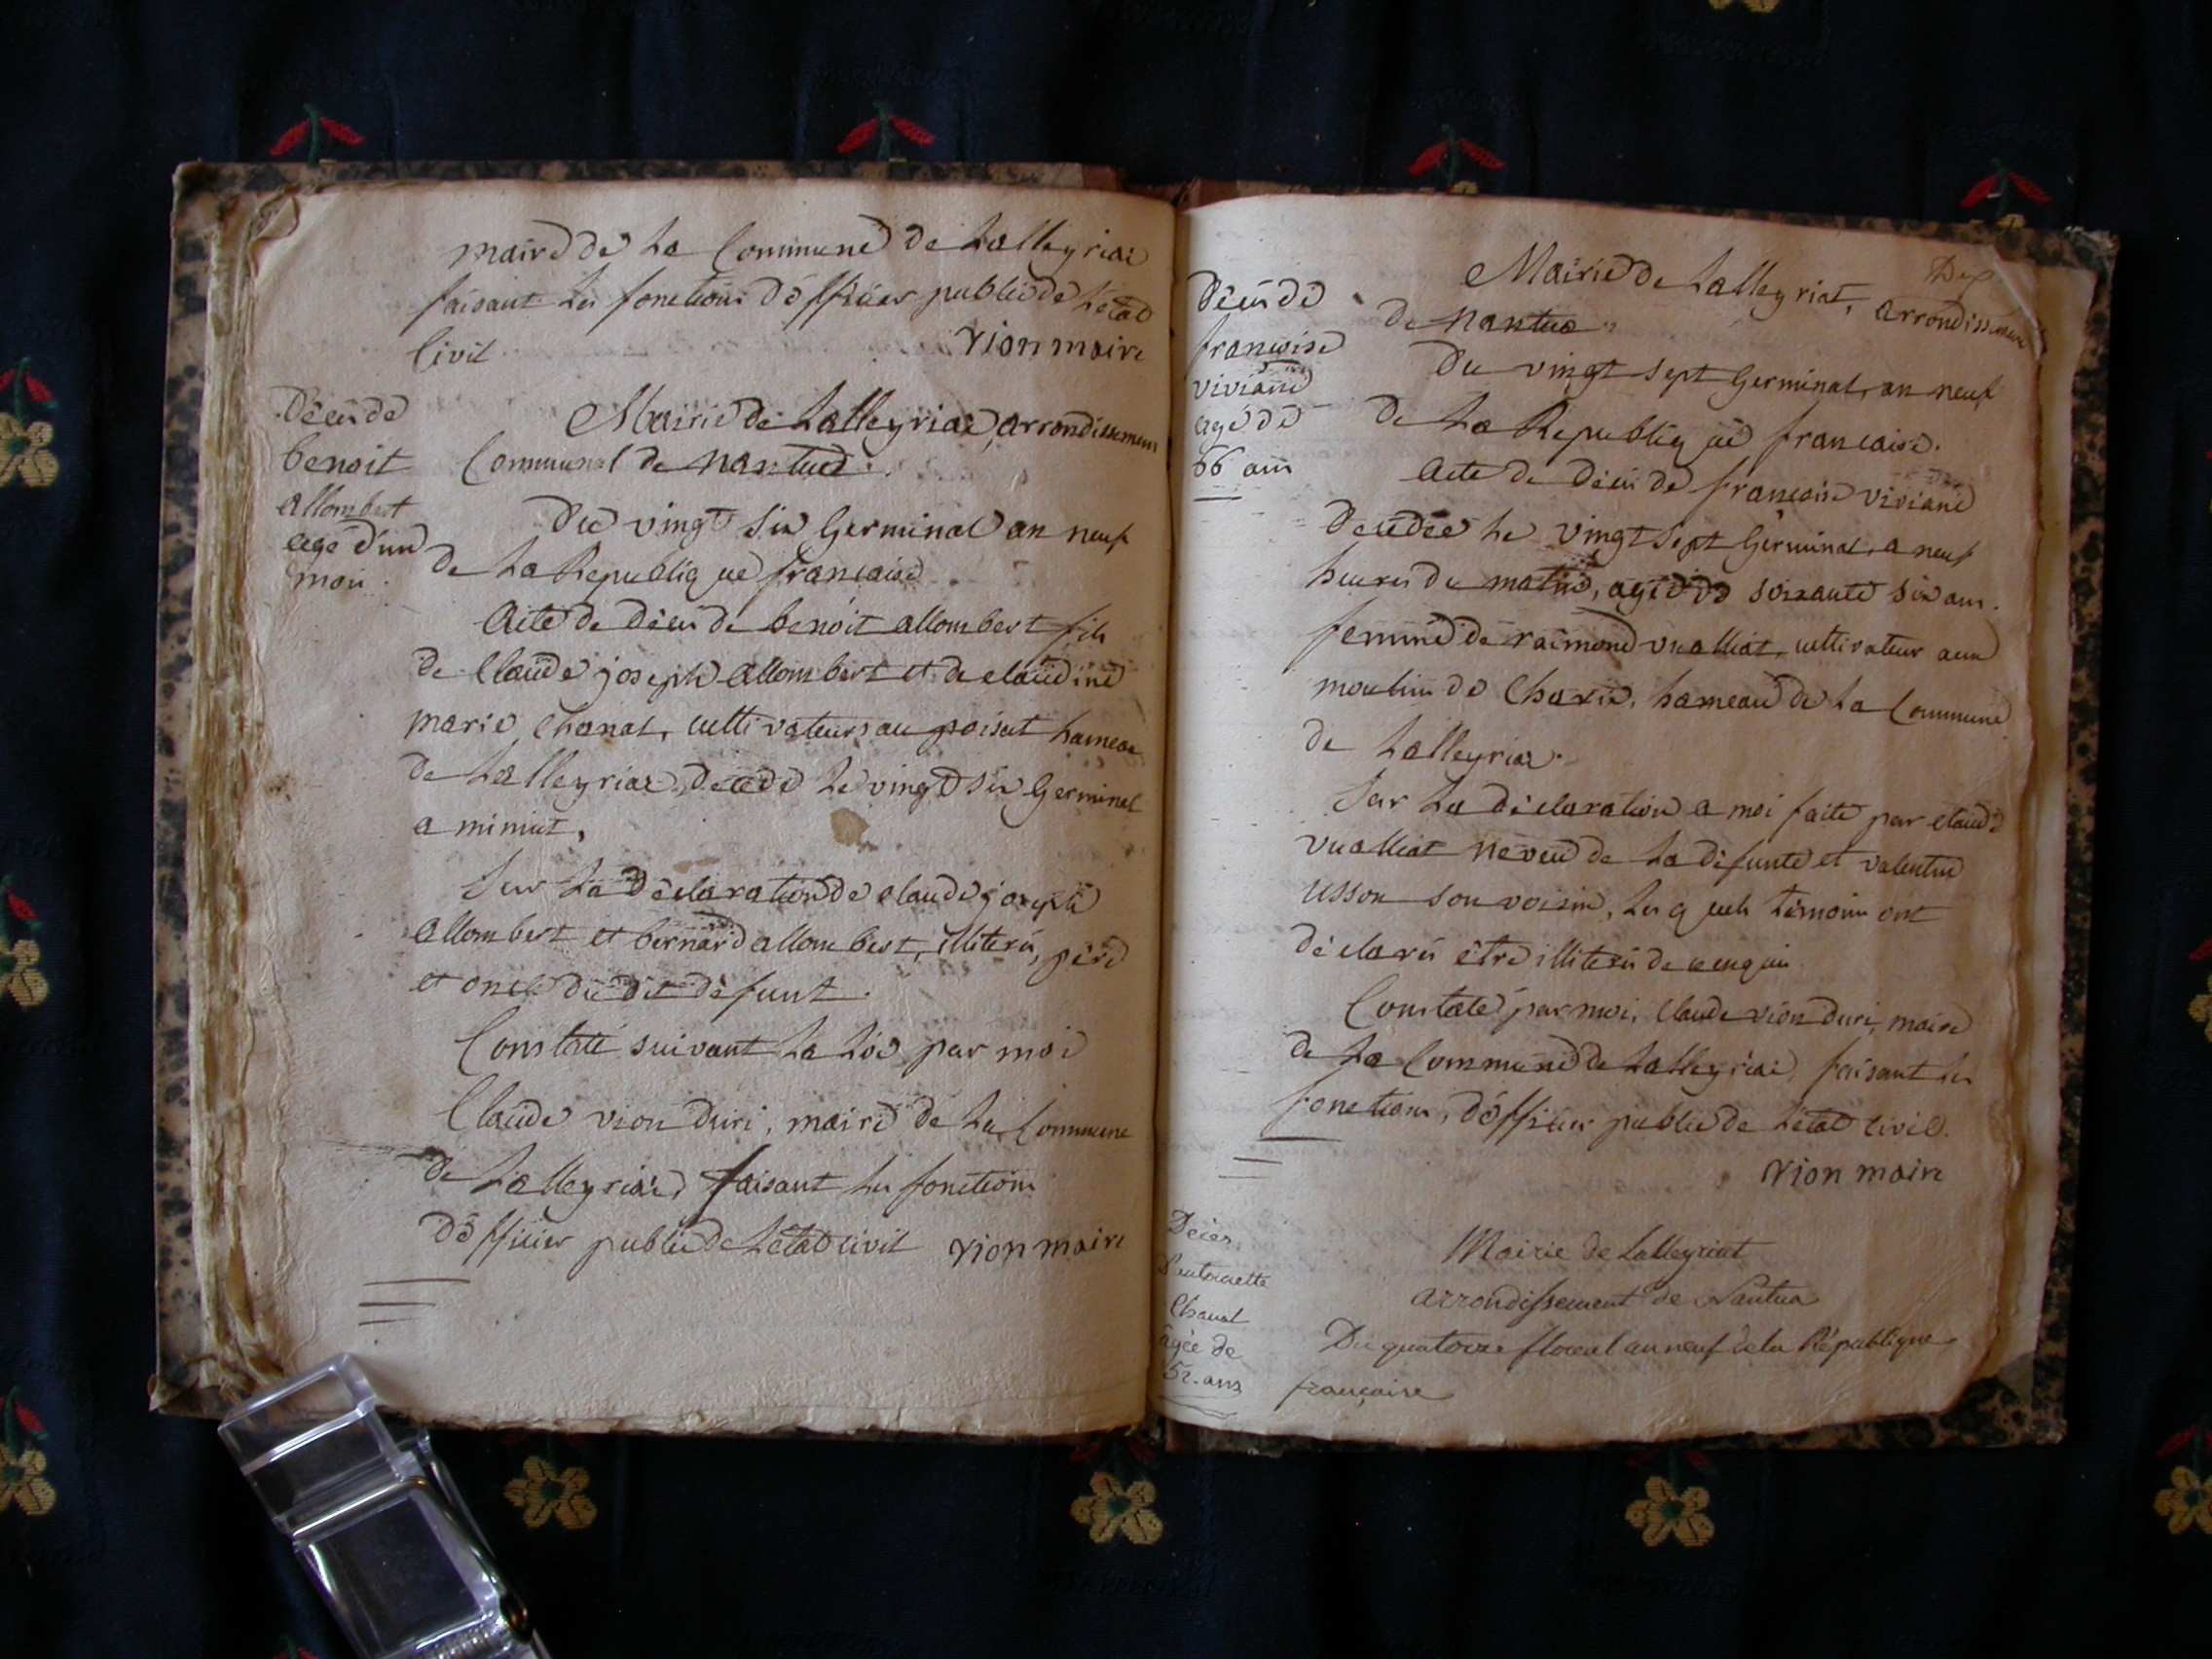 maire de la Commune de Lalleyriac
faisant les fonctions d'officier public de l'état
Civil vion maire
Décés de
benoit
allombert
agé d'un
mois
Mairie de Lalleyriac, arrondissement
Communal de nantua.
Du vingt six Germinal an neuf
de La Republiq ue francaise
Acte de décés de benoit allombert fils
de Claude joseph allombert et de claudine
marie Chanal, cultivateurs au poisat hameau
de Lalleyriac, décédé le vingt six Germinal
a minuit,
Sur la déclaration de claude joseph
allombert et bernard allombert, illiterés, pere
et oncle du dit défunt.
Constaté suivant la loi par moi
Claude vion duri, maire de la Commune
de Lalleyriac, faisant les fonctions
d'officier public de l'état civil vion maire
Mairie de Lalleyriat, arrondissement
de nantua
Décés de
francoise
viviane
agé de
66 ans
Du vingt sept Germinal, an neuf
de La Republiq ue francaise.
Acte de décés de francoise viviane
décédée le vingt sept Germinal, a neuf
heures du matin, agé de soixante six ans.
femme de raimond vualliat, cultivateur aux
moulin de Charix, hameau de la Commune
de Lalleyriac.
Sur La déclaration a moi faite par claude
vualliat neveu de la défunte et valentin
usson son voisin, lesq uels témoins ont
déclarés étre illiterés de ce enquis
Constaté par moi, Claude vion duri, maire
de La Commune de Lalleyriac, faisant les
fonctions, d'officier public de l'état civil.
vion maire
Décès
d'antoinette
Chanal
âgée de
52. ans
Mairie de Lalleyriat
arrondissement de Nantua
Du quatorze floréal an neuf de la République
française